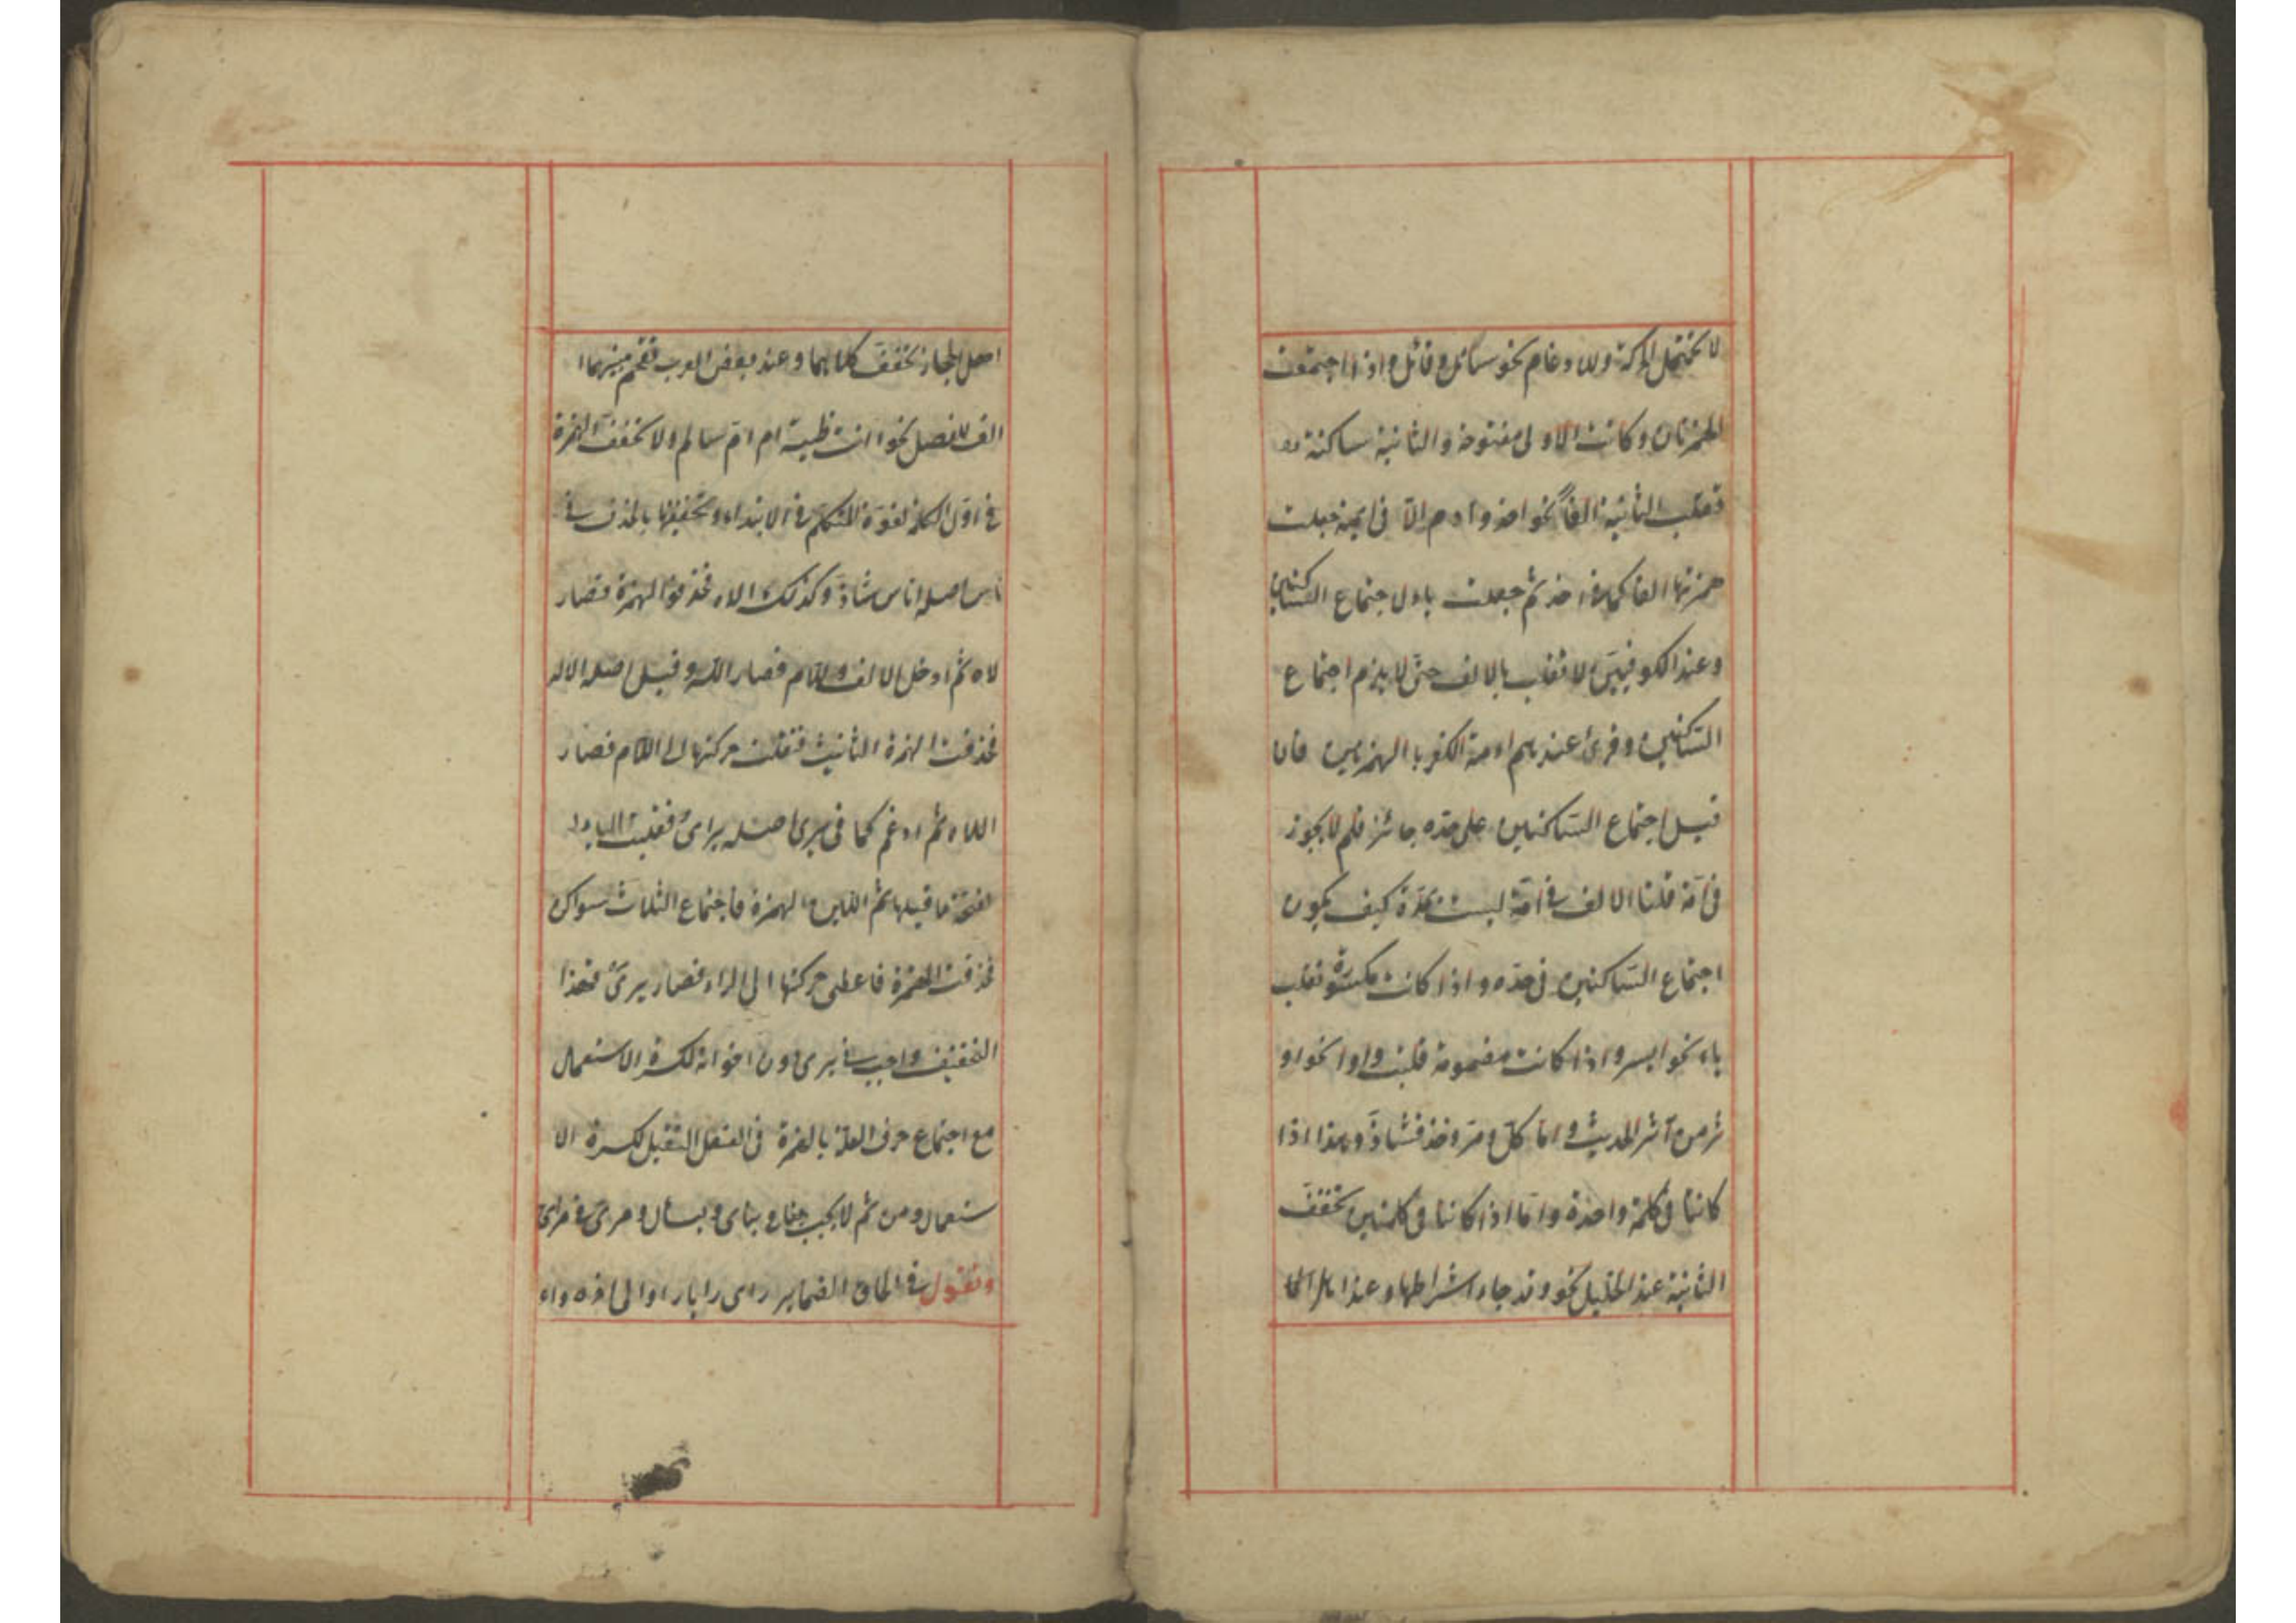 لا تحتمل الحركة ولا دغام نحو سائل و قائل و اذا اجتمعت
الهمزتان و كانت الاولى مفتوحة و الثانية ساكنة
تقلب الثانية الفاً نحو اخذ و ادم الّا فى ايمة جعلت
همزتها الفا كما فى اخذ ثم جعلت ياء لاجتماع الساكنين
و عند الكوفيين لا تقلب بالالف حتى لا يلزم اجتماع
السّاكنين و قرئ عندهم اءمة الكفر با الهمزتين فان
قيل اجتماع السّاكنين على حدّه جائز فلم لا يجوز
فى آمّة قلنا الالف فى آمّة ليست بمدّة كيف يكون
اجتماع السّاكنين فى حدّه و اذا كانت مكسورة تقلب
ياء نحو ايسر و اذا كانت مضمومة قلبت واوا نحو او
ثر من آثر الحديث و امّا كل و مر و خذ فشاذّ و هذا اذا
كانتا فى كلمة واحدة و امّا اذا كانتا فى كلمتين تخفّف
الثانية عند الخليل نحو و قد جاء اشراطها و عند اهل الحا
اهل الحجاز تخفّف كلاهما و عند بعض العرب تقحم بينهما ا
الف للفصل نحو اانت ظبية ام امّ سالم و لا تخفّف الهمزة
فى اوّل الكلمة لقوّة المتكلّم فى الابتداء و تخفيفها بالحذف فى
ناس اصله اناس شاذّ و كذلك الاه فحذفوا الهمزة فصار
لاه ثم ادخل الالف و اللام فصار اللّه و قيل اصله الاله
فحذفت الهمزة الثانية فنقلت حركتها الى اللّام فصار
اللاه ثم ادغم كما فى يرى اصله يرأى فقلبت الياء
لفتحة ما قبلها ثم اللين الهمزة فاجتماع الثلاث سواكن
فحذفت الهمزة فاعطى حركتها الى الراء فصار يرى فهذا
التخفيف واجب فى يرى دون اخواته لكثرة الاستعمال
مع اجتماع حرف العلّة بالهمزة فى الفعل الثقيل لكسرة الا
ستعمال و من ثم لا يجب و ينأى و يسأل و مرى فى مرأى
و تقول فى الحاق الضماير راى رايا راوا الى اخره و اء